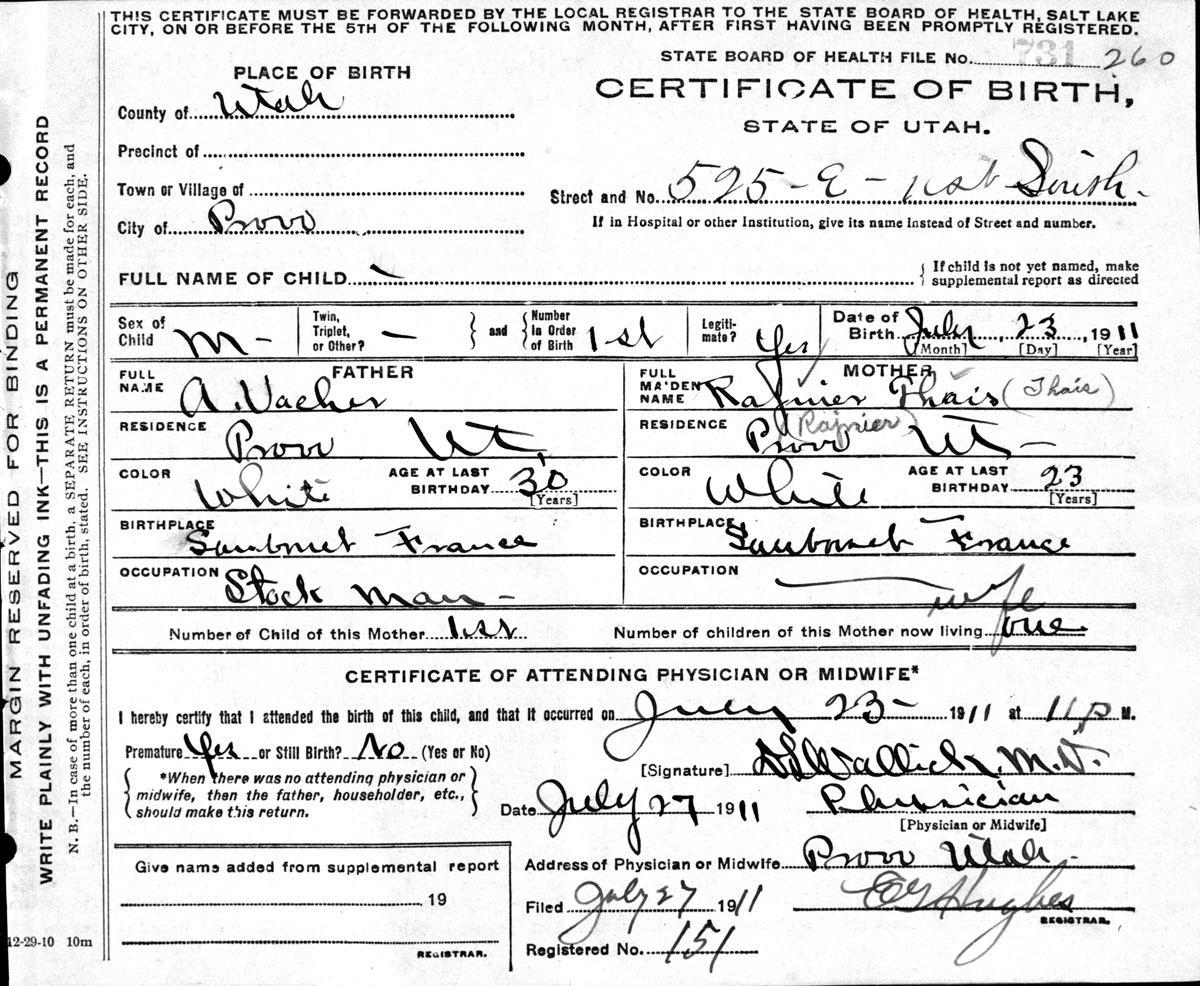 THIS CERTIFICATE MUST BE FORWARDED BY THE LOCAL REGISTRAR TO THE STATE BOARD OF HEALTH, SALT LAKE
CITY, ON OR BEFORE THE 5TH OF THE FOLLOWING MONTH, AFTER FIRST HAVING BEEN PROMPTLY REGISTERED.
MARGIN RESERVED FOR BINDING
WRITE PLAINLY WITH UNFADING INK—THIS IS A PERMANENT RECORD
N. B.—In case of more than one child at a birth, a SEPARATE RETURN must be made for each, and
the number of each, in order of birth, stated. SEE INSTRUCTIONS ON OTHER SIDE.
STATE BOARD OF HEALTH FILE No. 731 260
PLACE OF BIRTH
CERTIFICATE OF BIRTH,
STATE OF UTAH.
County of Utah
Precinct of
Town or Village of
Street and No. 525 - E - 1st South -
City of Provo
If in Hospital or other Institution, give its name instead of Street and number.
FULL NAME OF CHILD —
{ If child is not yet named, make
supplemental report as directed
Sex of Child M -
Twin, Triplet, or Other? —
and
Number in Order of Birth 1st
Legiti-mate? Yes
Date of Birth July 23, 1911
[Month] [Day] [Year]
FATHER
FULL NAME A. Vacher
RESIDENCE Provo Ut.
COLOR White AGE AT LAST BIRTHDAY 30 [Years]
BIRTHPLACE France
OCCUPATION Stock Man -
MOTHER
FULL MAIDEN NAME Thais (Thais)
RESIDENCE Provo Ut -
COLOR White AGE AT LAST BIRTHDAY 23 [Years]
BIRTHPLACE France
OCCUPATION wife
Number of Child of this Mother 1st Number of children of this Mother now living one
CERTIFICATE OF ATTENDING PHYSICIAN OR MIDWIFE*
I hereby certify that I attended the birth of this child, and that it occurred on July 23 - 1911 at 11 p M.
Premature Yes or Still Birth? No (Yes or No)
*When there was no attending physician or
midwife, then the father, householder, etc.,
should make this return.
[Signature] M.D.
Date July 27 1911 Physician
[Physician or Midwife]
Give name added from supplemental report
19
REGISTRAR.
Address of Physician or Midwife Provo Utah -
Filed July 27 1911 Hughes
REGISTRAR.
Registered No. 151
12-29-10 10m